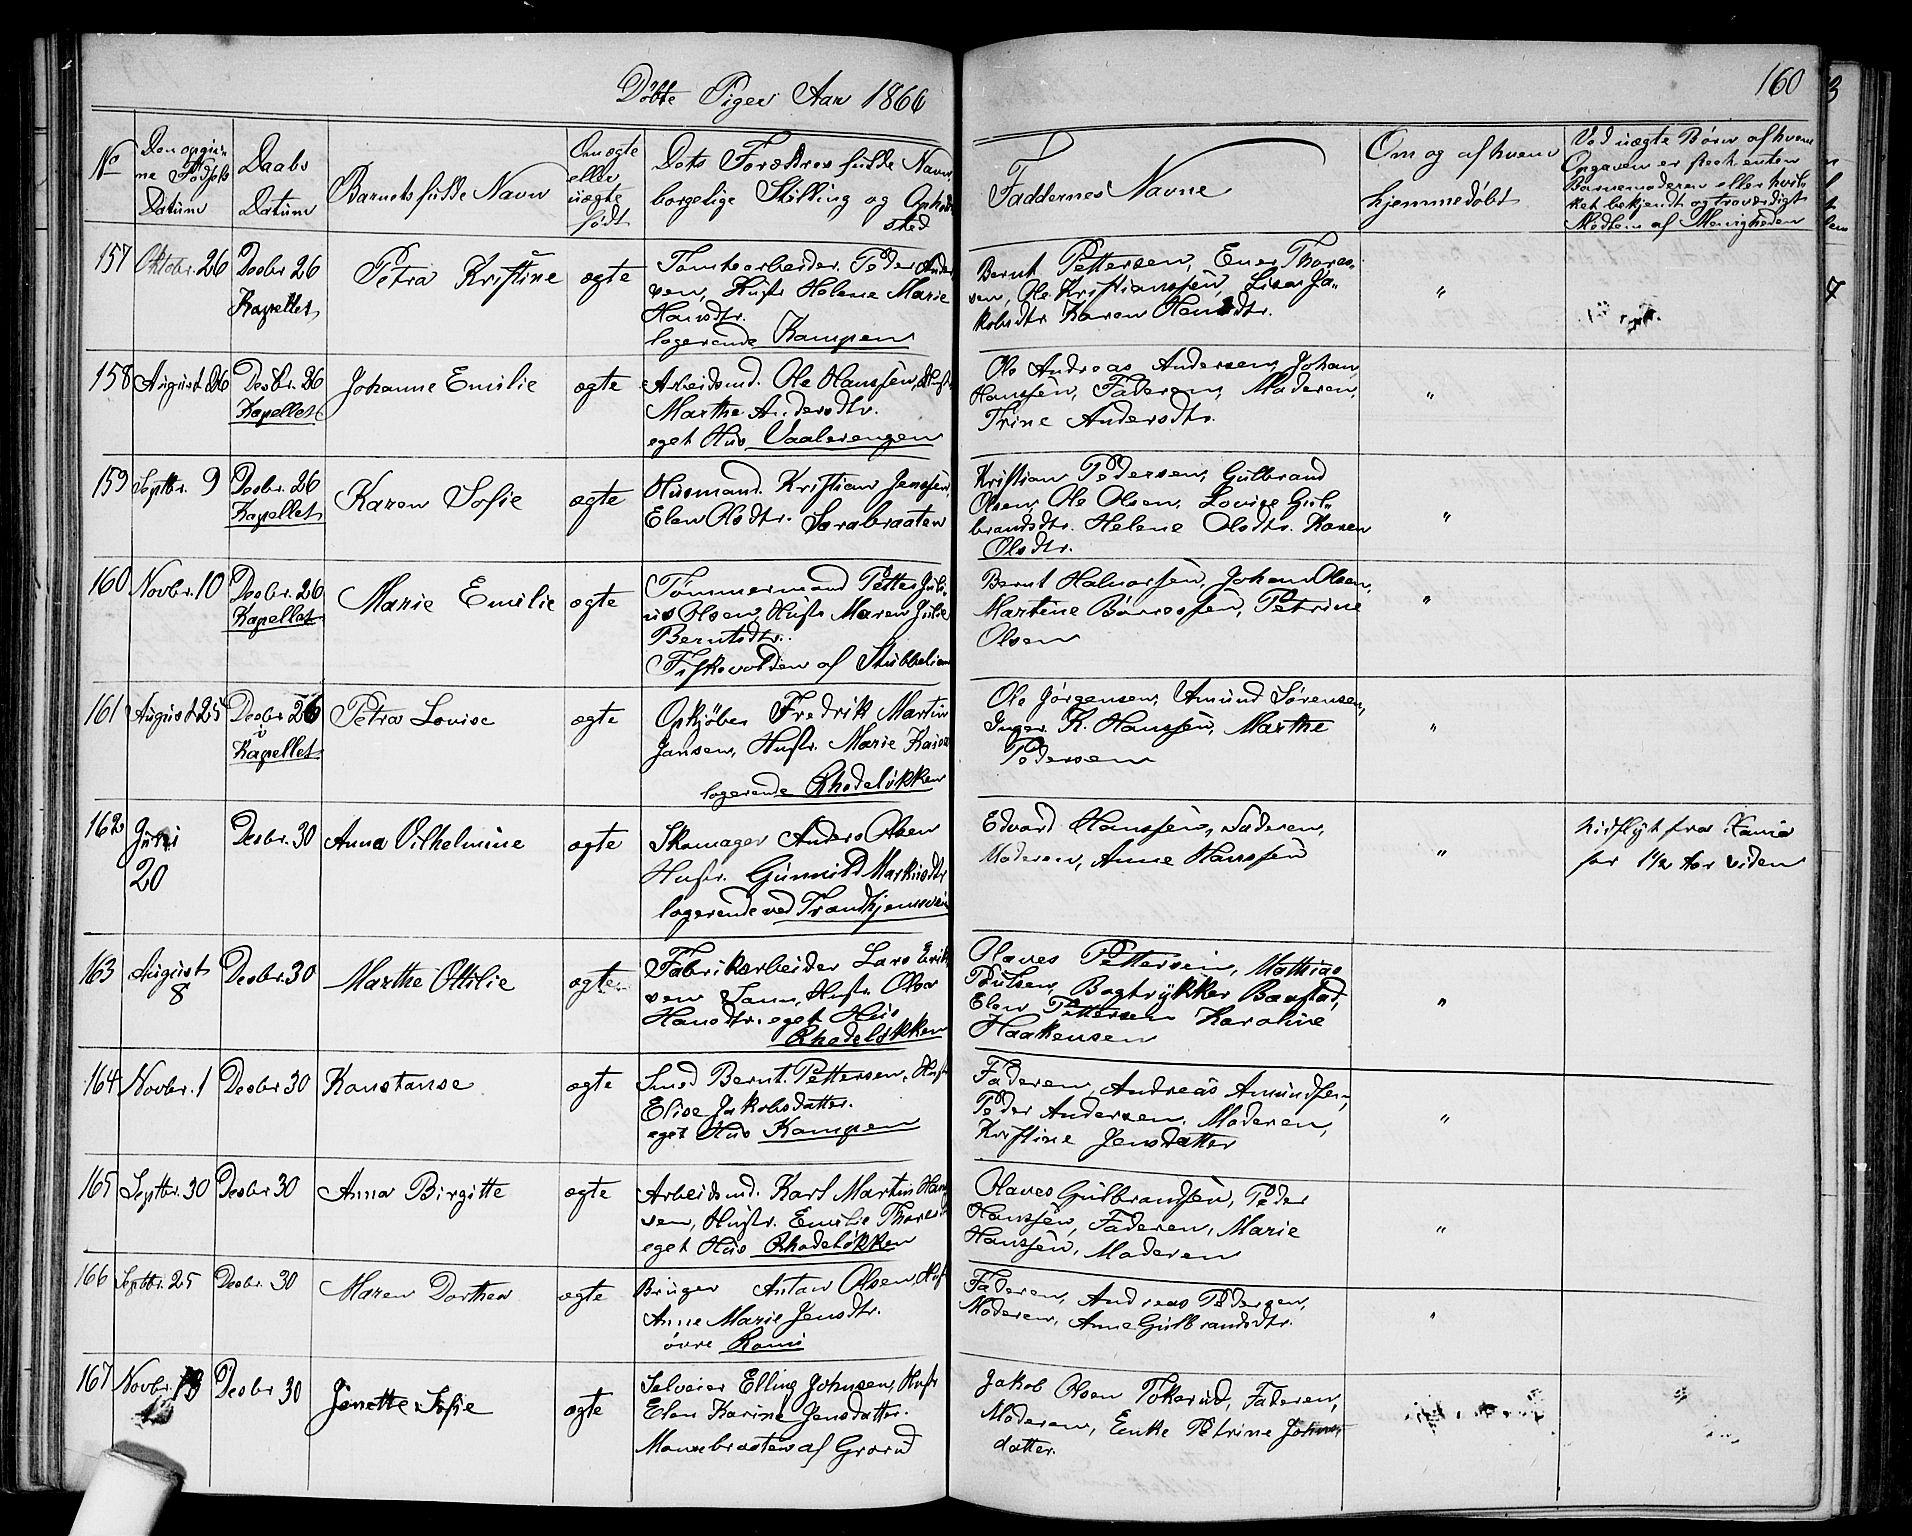 160
Döbte Piger Aar 1866
No
Den opgiv-
ne Födsels
Datum
Daabs
Datum
Barnets fulde Navn
Om ægte
eller
uægte
födt
Dets Forældres fulde Navn,
borgelige Stilling og Opholds
sted
Faddernes Navne
Om og af hvem
hjemmedöbt
Ved uægte Börn af hvem
Opgaven er skeet enten
Barnemoderen eller hvil-
ket bekjendt og troværdigt
Medlem af Menigheden
157
Oktobr. 26
Desbr 26
Kapellet
Petra Kristine
ægte
Tomtearbeider Peder Ander
sen, Hustr Helene Marie
Hansdtr.
logerende Kampen
Bernt Pettersen, Ener Thores-
sen, Ole Kristianssen, Lisa Ja-
kobsdtr Karen Hansdtr.
"
158
August 26
Desbr. 26
Kapellet
Johanne Emilie
ægte
Arbeidsmd. Ole Hanssen, Hustr
Marthe Andersdtr.
eget Hus Vaalerengen
Ole Andreas Andersen, Johan
Hanssen, Faderen, Moderen,
Trine Andersdtr.
"
159
Septbr. 9
Desbr. 26
Kapellet
Karen Sofie
ægte
Husmand. Kristian Jenssen,
Elen Olsdtr. Sorabraaten
Kristian Pedersen, Gulbrand
Olsen, Ole Olsen, Lovise Gul-
brandsdtr. Helene Olsdtr. Karen
Olsdtr.
"
160
Novbr. 10
Desbr. 26
Kapellet
Marie Emilie
ægte
Tömmermand Petter Juli-
us Olsen, Hustr Maren Julie
Berntsdtr.
Fiskevolden af Stubbelien
Bernt Halvorsen, Johan Olsen,
Martine Börressen, Petrine
Olsen
"
161
August 25
Desbr 26
i
Kapellet
Petra Lovise
ægte
Opkjöber Fredrik Martin
Jansen, Hustr. Marie Kaisa
logerende Rhodelökken
Ole Jörgensen, Amund Sörensen,
Inger K. Hanssen, Marthe
Pedersen
"
162
Juli
20
Desbr. 30
Anna Vilhelmine
ægte
Skomager Anders Olsen
Hustr. Gunnild Markusdtr
logerende ved Trondhjemsvei
Edvard Hanssen, Faderen,
Moderen, Anne Hanssen
"
hidflyt fra Xania
for 1 1/2 Aar siden
163
August
8
Desbr. 30
Marthe Ottilie
ægte
Fabrikarbeider Lars Erik
sen Hustr. Olea
Hansdtr. eget Hus
Rhodelökken
Olaves Pettersen, Mathias
Poulsen, Bogtrykker Baastad,
Elen Pettersen Karoline
Haakensen
"
164
Novbr. 1
Desbr 30
Konstanse
ægte
Smed Bernt Pettersen, Hustr
Elise Jakobsdatter.
eget Hus Kampen
Faderen, Andreas Amundsen,
Peder Andersen, Moderen,
Kristine Jensdatter
"
165
Septbr. 30
Desbr 30
Anna Birgitte
ægte
Arbeidsmd. Karl Martin Han
sen, Hustr. Emilie Thores
eget Hus Rhodelökken
Olaves Gulbrandsen, Peder
Hanssen, Faderen, Marie
Hanssen, Moderen
"
166
Septbr. 25
Desbr. 30
Maren Dorthea
ægte
Bruger Anton Olsen, Hustr
Anne Marie Jensdtr.
övre Romi
Faderen, Andreas Pedersen,
Moderen, Anne Gulbrandsdtr.
"
167
Novbr. 13
Desbr 30
Jenette Sofie
ægte
Selveier Elling Johnsen, Hustr
Elen Karine Jensdatter.
Monsebraaten af Grorud
Jakob Olsen Tokerud, Faderen,
Moderen, Enke Petrine Johns-
datter.